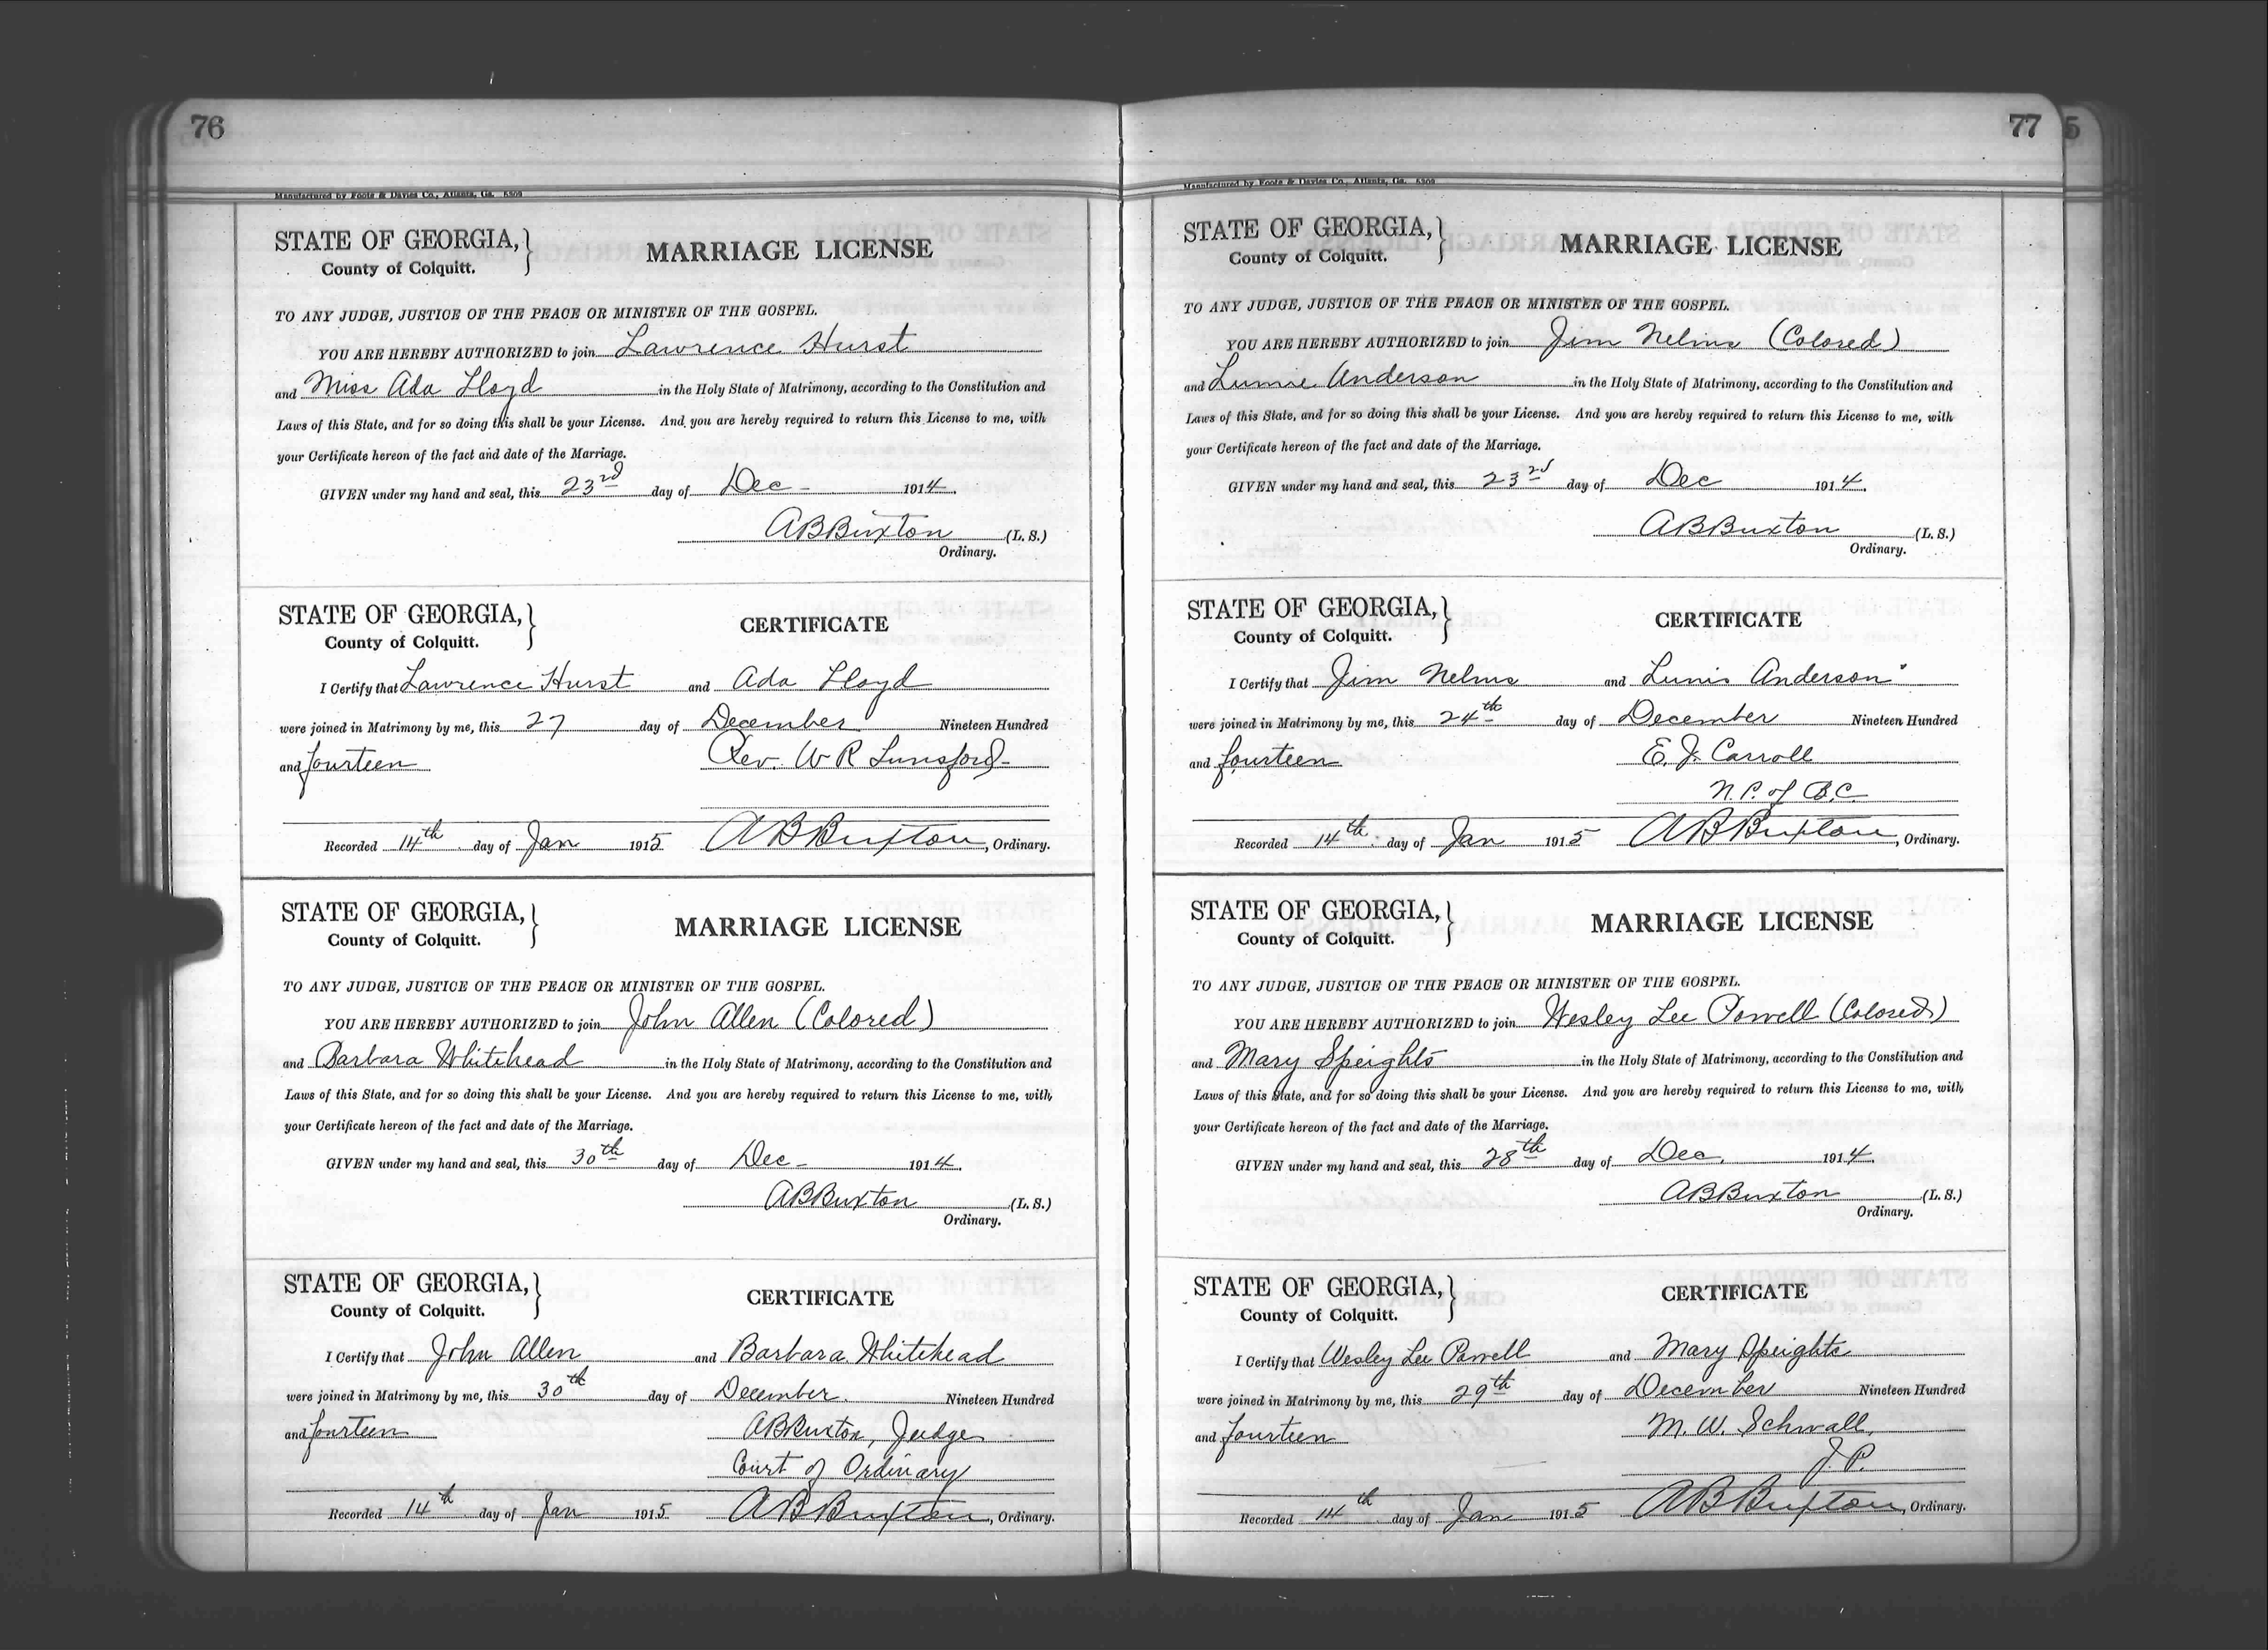 76
Manufactured by Foote & Davies Co., Atlanta, Ga. 5309
STATE OF GEORGIA,
County of Colquitt.
MARRIAGE LICENSE
TO ANY JUDGE, JUSTICE OF THE PEACE OR MINISTER OF THE GOSPEL.
YOU ARE HEREBY AUTHORIZED to join Lawrence Hurst
and Miss Ada Lloyd in the Holy State of Matrimony, according to the Constitution and
Laws of this State, and for so doing this shall be your License. And you are hereby required to return this License to me, with
your Certificate hereon of the fact and date of the Marriage.
GIVEN under my hand and seal, this 23rd day of Dec - 1914.
A B Buxton (L. S.)
Ordinary.
STATE OF GEORGIA,
County of Colquitt.
CERTIFICATE
I Certify that Lawrence Hurst and Ada Lloyd
were joined in Matrimony by me, this 27 day of December Nineteen Hundred
and fourteen Rev. W R Lunsford
Recorded 14th day of Jan 1915 A B Buxton, Ordinary.
STATE OF GEORGIA,
County of Colquitt.
MARRIAGE LICENSE
TO ANY JUDGE, JUSTICE OF THE PEACE OR MINISTER OF THE GOSPEL.
YOU ARE HEREBY AUTHORIZED to join John Allen (Colored)
and Barbara Whitehead in the Holy State of Matrimony, according to the Constitution and
Laws of this State, and for so doing this shall be your License. And you are hereby required to return this License to me, with
your Certificate hereon of the fact and date of the Marriage.
GIVEN under my hand and seal, this 30th day of Dec - 1914.
A B Buxton (L. S.)
Ordinary.
STATE OF GEORGIA,
County of Colquitt.
CERTIFICATE
I Certify that John Allen and Barbara Whitehead
were joined in Matrimony by me, this 30th day of December Nineteen Hundred
and fourteen A B Buxton, Judge
Court of Ordinary
Recorded 14th day of Jan 1915 A B Buxton, Ordinary.
77 5
Manufactured by Foote & Davies Co., Atlanta, Ga. 5309
STATE OF GEORGIA,
County of Colquitt.
MARRIAGE LICENSE
TO ANY JUDGE, JUSTICE OF THE PEACE OR MINISTER OF THE GOSPEL.
YOU ARE HEREBY AUTHORIZED to join Jim Nelms (Colored)
and Lumie Anderson in the Holy State of Matrimony, according to the Constitution and
Laws of this State, and for so doing this shall be your License. And you are hereby required to return this License to me, with
your Certificate hereon of the fact and date of the Marriage.
GIVEN under my hand and seal, this 23rd day of Dec 1914.
A B Buxton (L. S.)
Ordinary.
STATE OF GEORGIA,
County of Colquitt.
CERTIFICATE
I Certify that Jim Nelms and Lumis Anderson
were joined in Matrimony by me, this 24th day of December Nineteen Hundred
and fourteen E. J. Carroll
N. P. of B. C.
Recorded 14th day of Jan 1915 A B Buxton, Ordinary.
STATE OF GEORGIA,
County of Colquitt.
MARRIAGE LICENSE
TO ANY JUDGE, JUSTICE OF THE PEACE OR MINISTER OF THE GOSPEL.
YOU ARE HEREBY AUTHORIZED to join Wesley Lee Powell (Colored)
and Mary Speights in the Holy State of Matrimony, according to the Constitution and
Laws of this State, and for so doing this shall be your License. And you are hereby required to return this License to me, with
your Certificate hereon of the fact and date of the Marriage.
GIVEN under my hand and seal, this 28th day of Dec, 1914.
A B Buxton (L. S.)
Ordinary.
STATE OF GEORGIA,
County of Colquitt.
CERTIFICATE
I Certify that Wesley Lee Powell and Mary Speights
were joined in Matrimony by me, this 29th day of December Nineteen Hundred
and fourteen M. W. Schwall,
J. P.
Recorded 14th day of Jan 1915 A B Buxton, Ordinary.